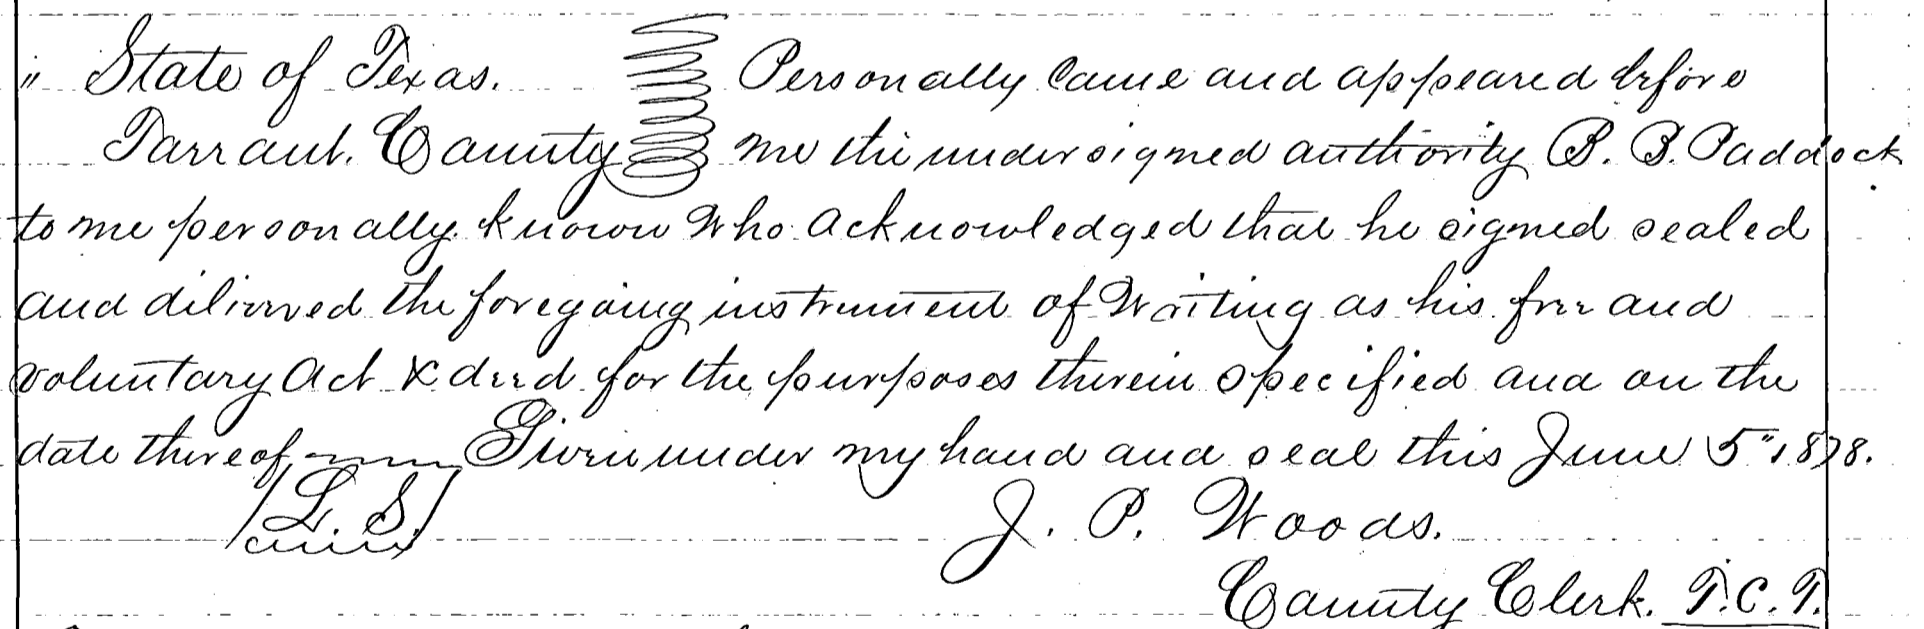 " State of Texas. Personally Came and appeared before
Tarrant. County me the undersigned authority B. B. Paddock
to me personally known Who acknowledged that he signed sealed
and delivered the foregoing instrument of Writing as his free and
voluntary act & deed for the purposes therein specified and on the
date thereof Given under my hand and seal this June 5" 1878.
[L. S.] J. P. Woods.
County Clerk. T. C. T.